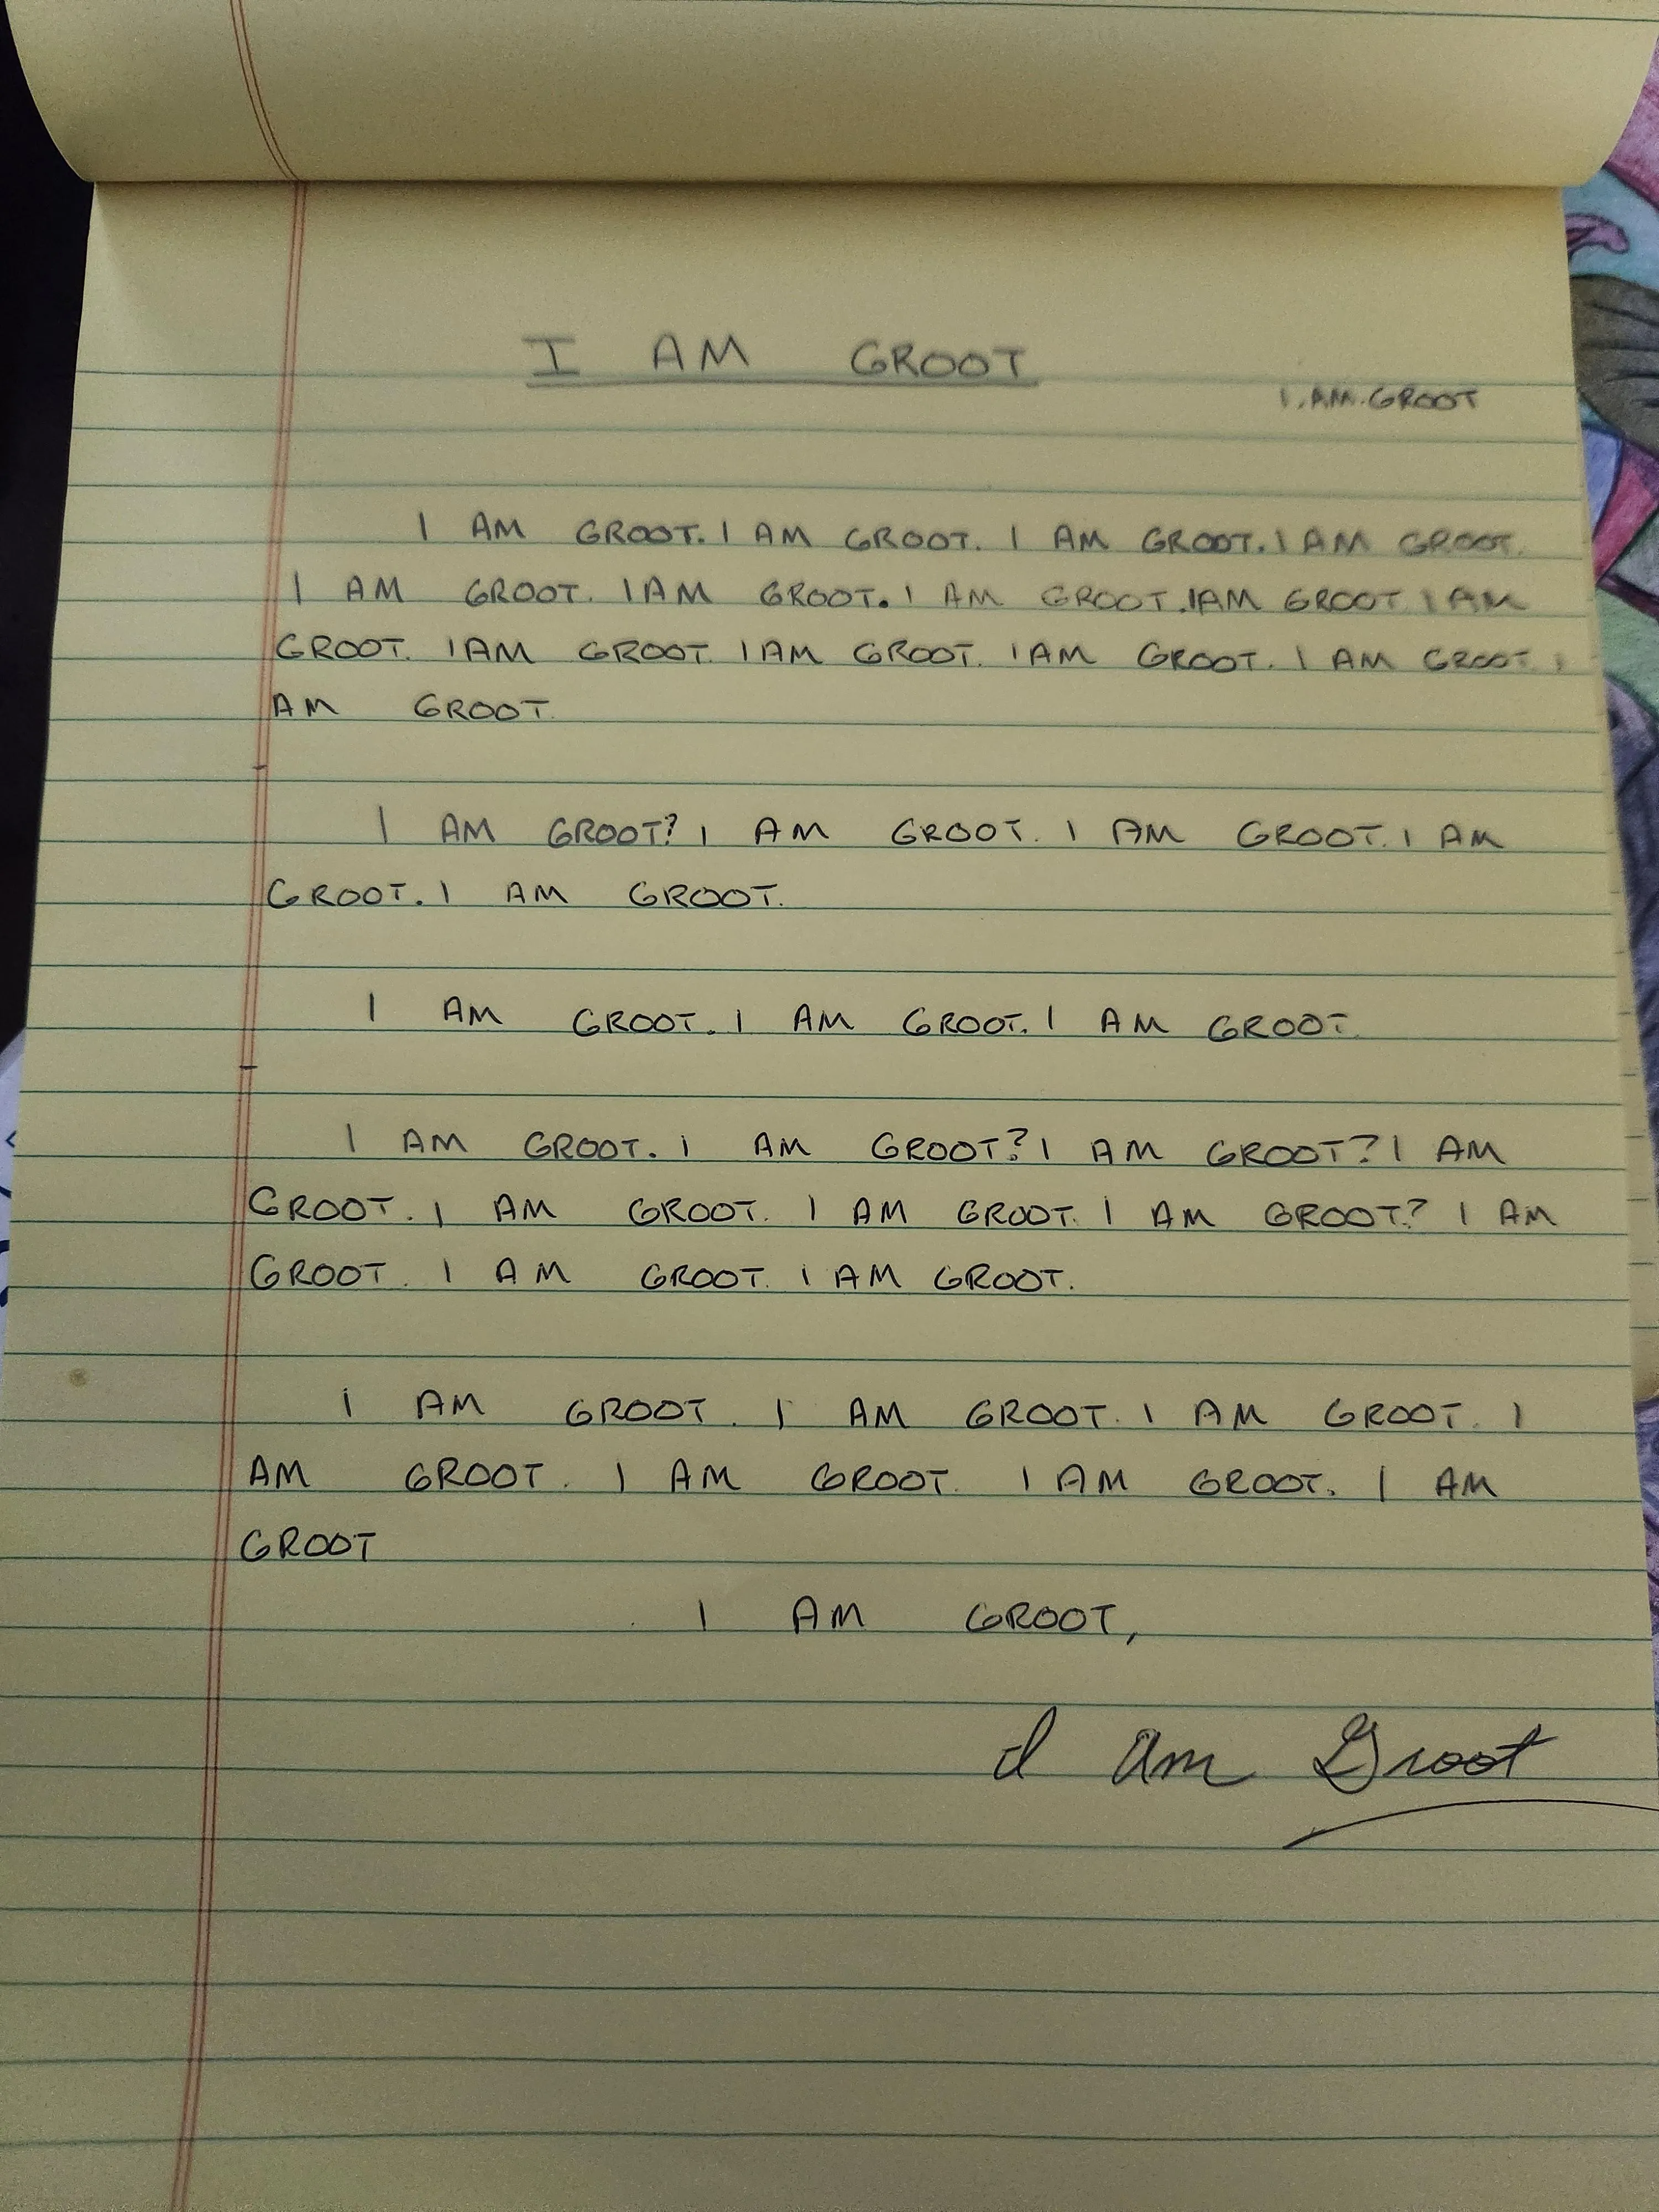 I AM GROOT
I.AM.GROOT
I AM GROOT. I AM GROOT. I AM GROOT. I AM GROOT.
I AM GROOT. I AM GROOT. I AM GROOT. I AM GROOT I AM
GROOT. I AM GROOT. I AM GROOT. I AM GROOT. I AM GROOT. I
AM GROOT.
I AM GROOT? I AM GROOT. I AM GROOT. I AM
GROOT. I AM GROOT.
I AM GROOT. I AM GROOT. I AM GROOT.
I AM GROOT. I AM GROOT? I AM GROOT? I AM
GROOT. I AM GROOT. I AM GROOT. I AM GROOT? I AM
GROOT. I AM GROOT. I AM GROOT.
I AM GROOT. I AM GROOT. I AM GROOT. I
AM GROOT. I AM GROOT. I AM GROOT. I AM
GROOT
I AM GROOT,
I am Groot